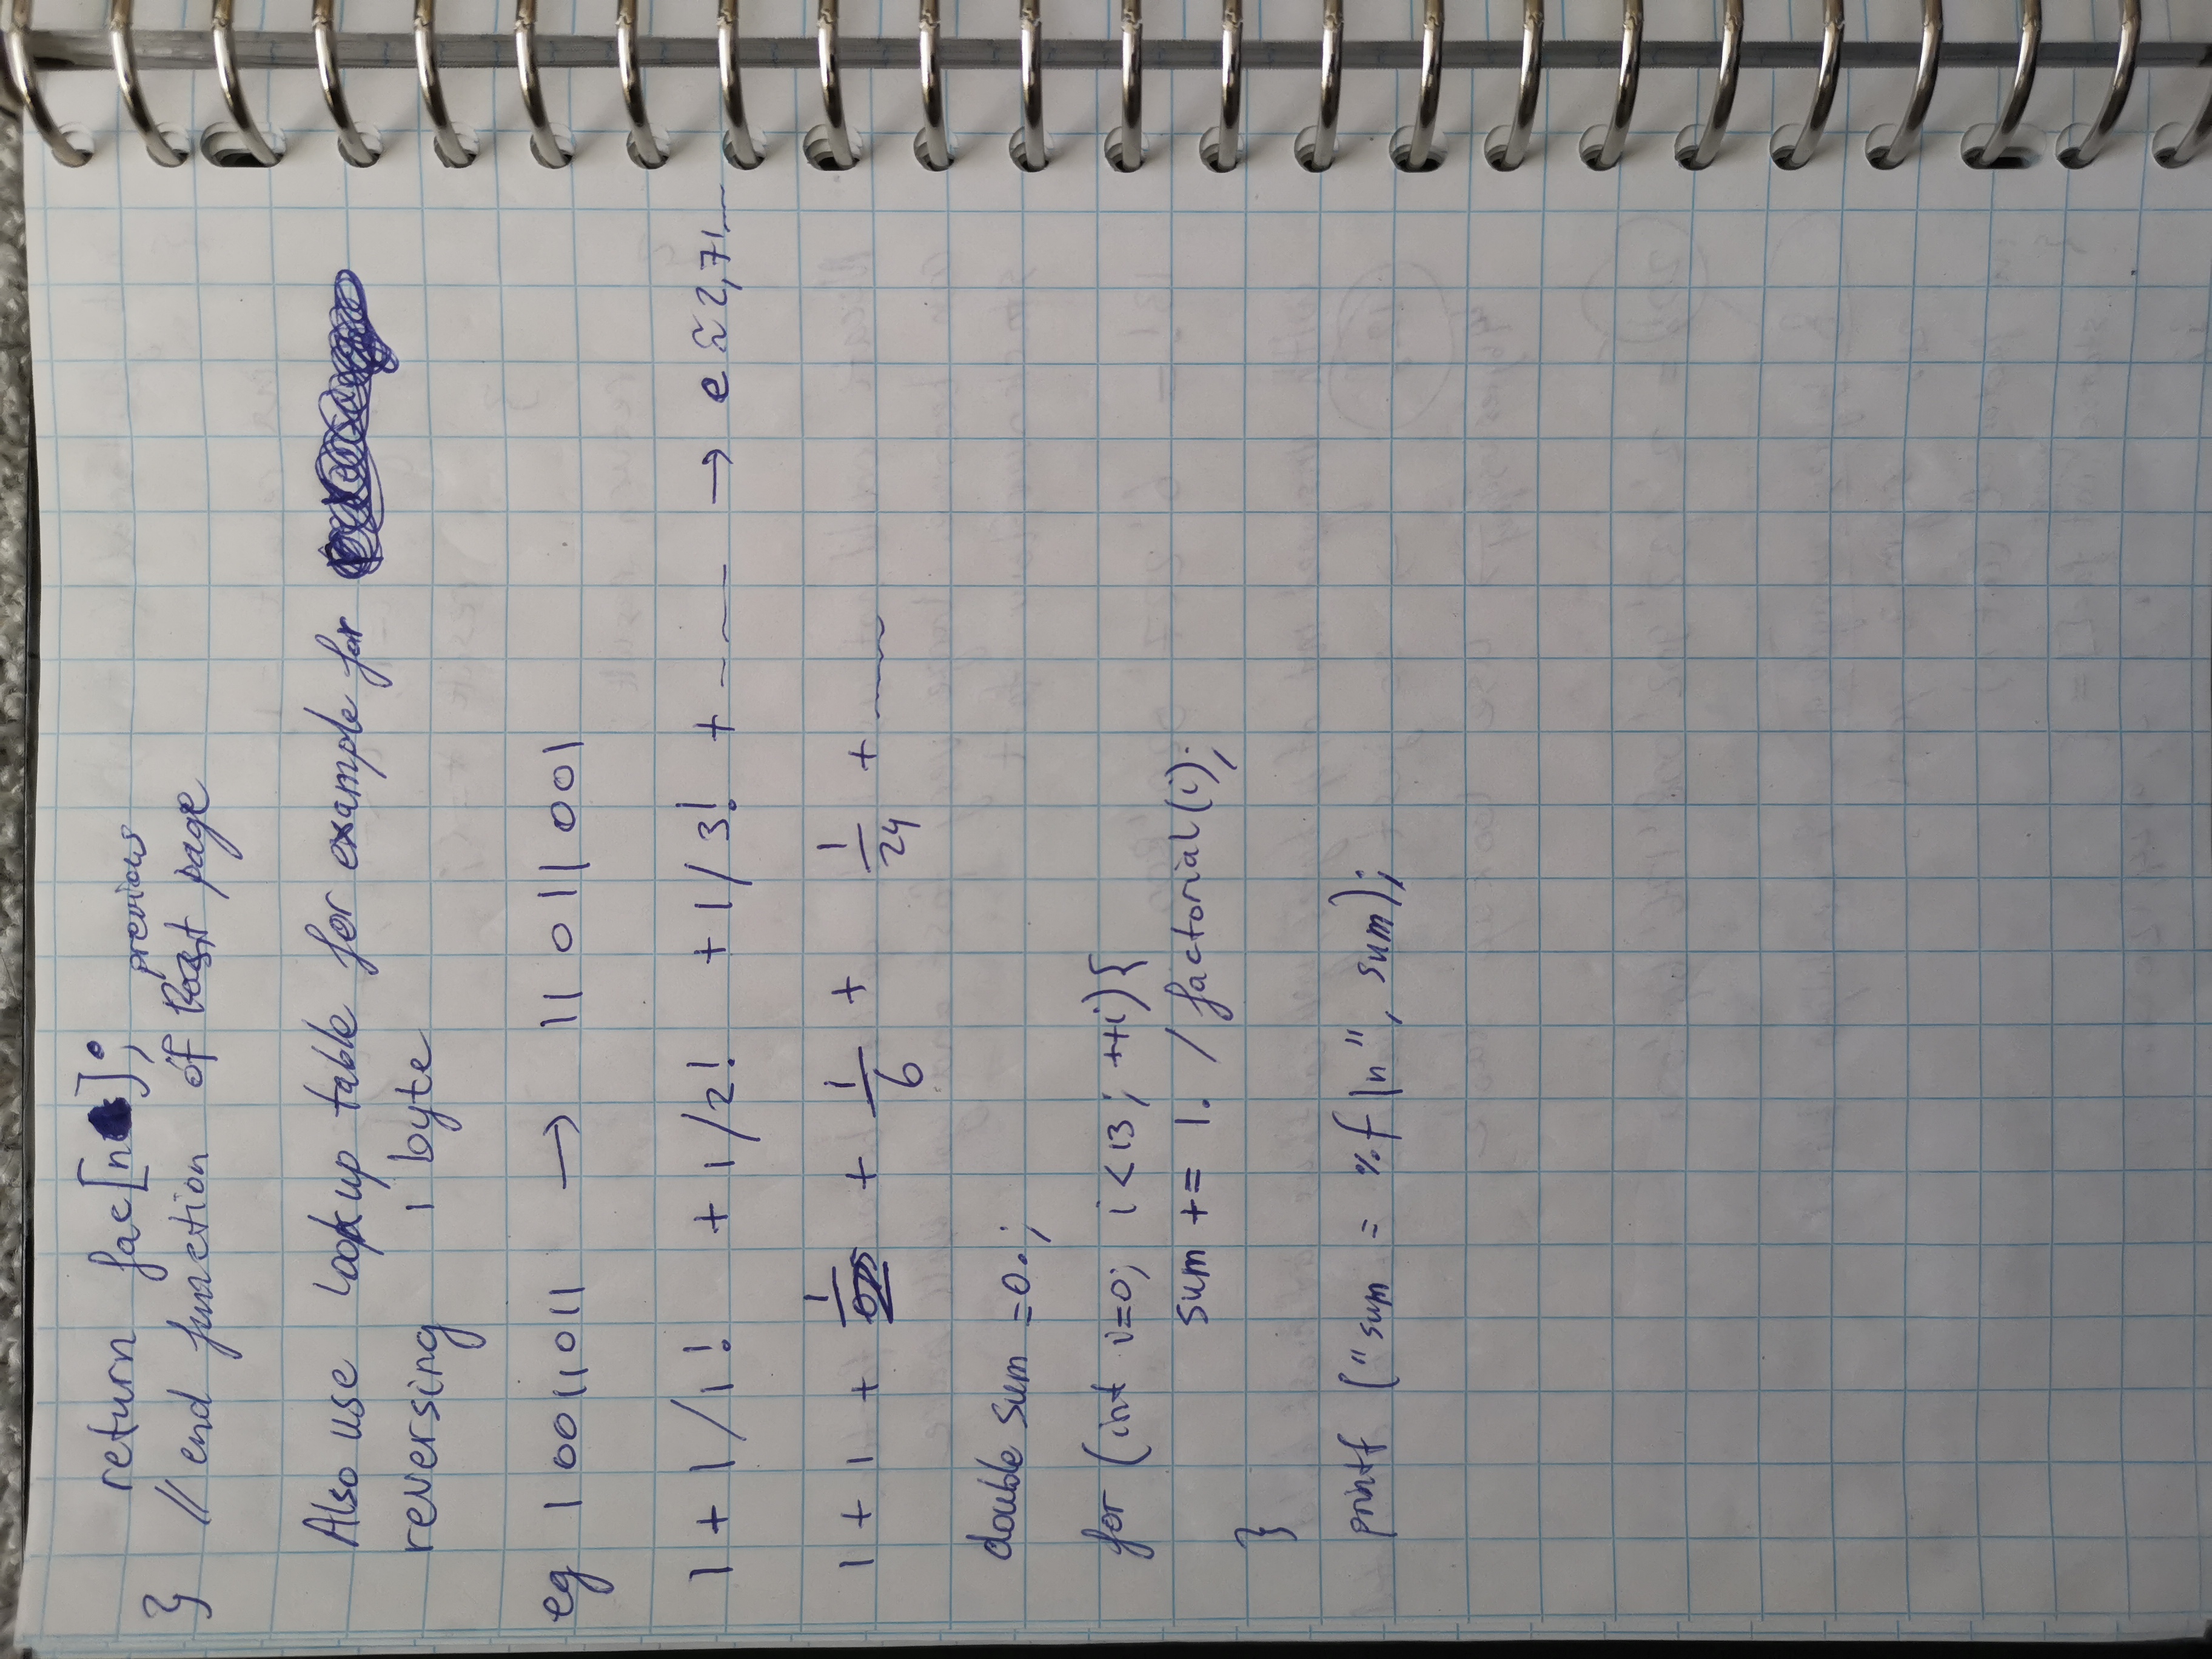 return fac[n];
previous
} // end function of page
Also use lookup table for example for
reversing 1 byte
eg 10011011 → 11011001
1 + 1/1! + 1/2! + 1/3! + ...... → e ≈ 2,71...
1 + 1 + 1/2 + 1/6 + 1/24 + ......
double sum = 0.;
for (int i=0; i<13; ++i){
sum += 1. / factorial(i);
}
printf ("sum = %f \n", sum);